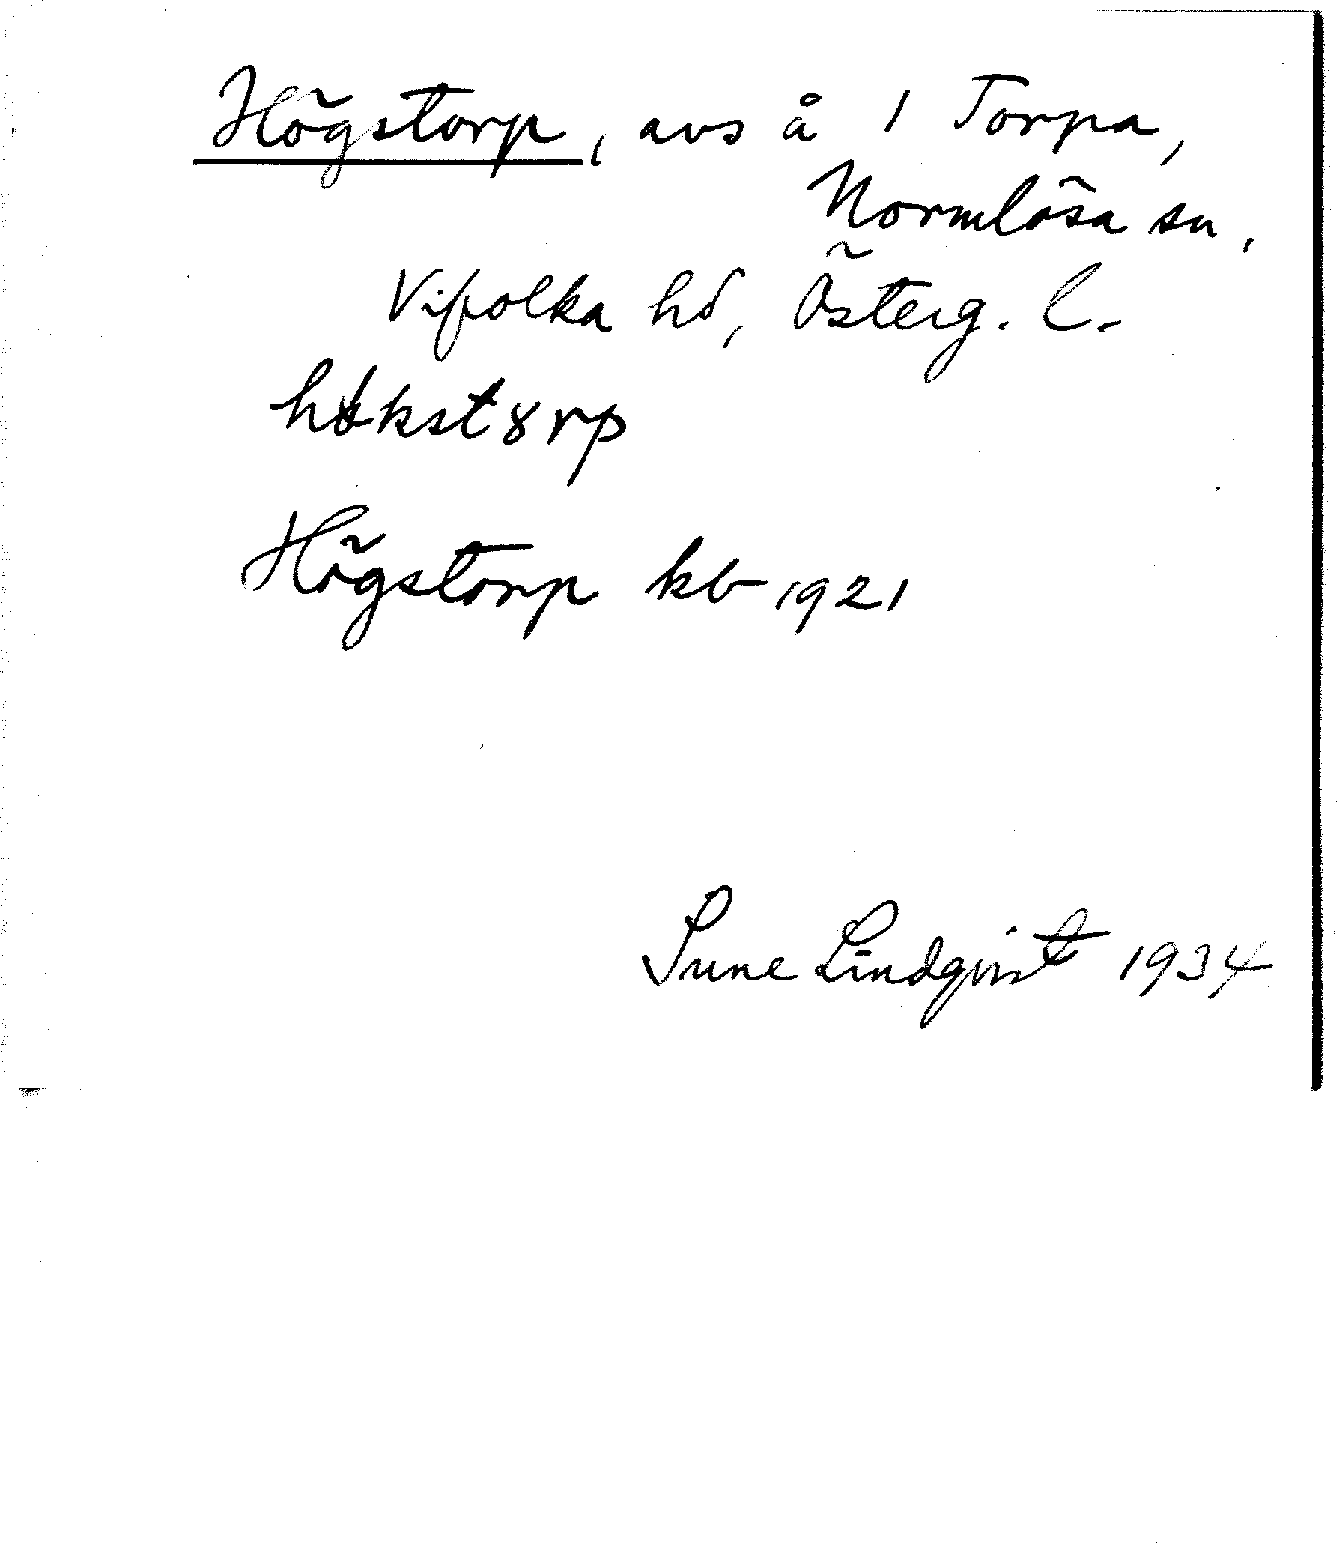 Högstorp, avs å 1 Torpa,
Normlösa sn,
Vifolka hd, Österg. l.
hökst8rp
Högstorp kb 1921
Sune Lindqvist 1934